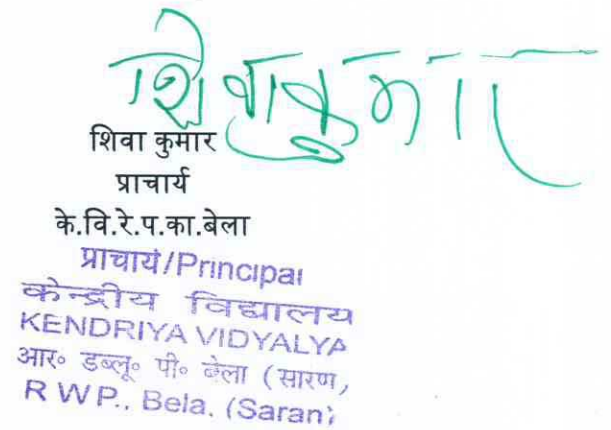 शिवाकुमार
शिवा कुमार
प्राचार्य
के.वि.रे.प.का.बेला
प्राचार्य/Principal
केन्द्रीय विद्यालय
KENDRIYA VIDYALYA
आर० डब्लू० पी० बेला (सारण)
R W P., Bela, (Saran)